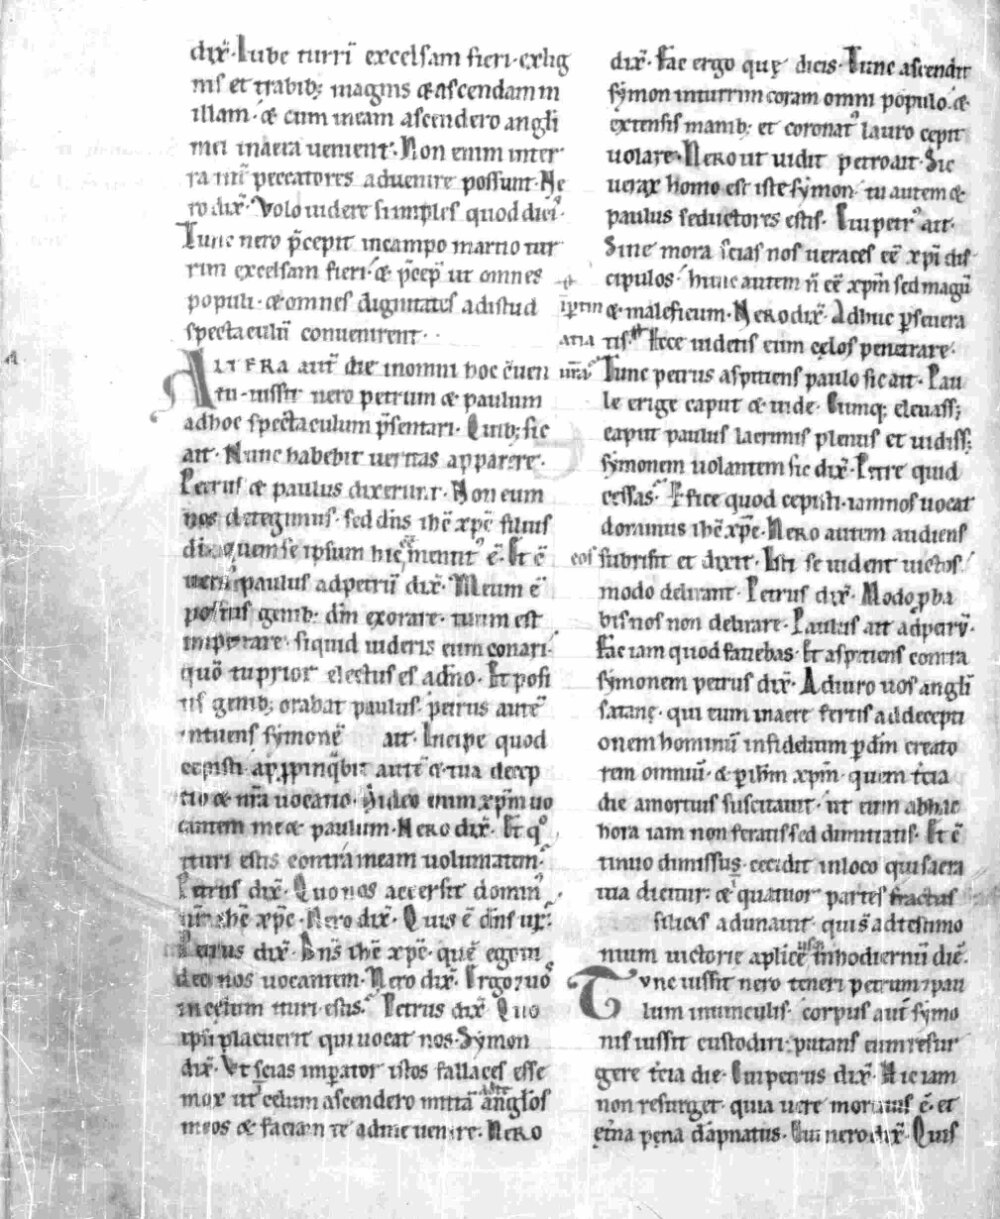 dix̄. Iube turrī excelsam fieri. ex lig
nis et trabib; magnis & ascendam in
illam. & cum in eam ascendero angli
mei in aera uenient. Non enim inter
ra int̄ peccatores aduenire possunt. Ne
ro dix̄. Volo uidere si imples quod dicis.
Tunc nero p̄cepit in campo martio tur
rim excelsam fieri. & p̄cep̄ ut omnes
populi. & omnes dignitates ad istud
spectaculū conuenirent.
ALTERA aut̄ die in omni hoc cōuen
tu. iussit nero petrum & paulum
ad hoc spectaculum p̄sentari. Quib; sic
ait. Nunc habebit ueritas apparere.
Petrus & paulus dixerunt. Non eum
nos detegimus. sed dn̄s ihē xp̄c filius
dī. quem se ipsum hic ē mentit' ē. Et c̄
uersꝰ paulus ad petrū dix̄. Meum ē
positus genib; dm̄ exorare. tuum est
impetrare. siquid uideris eum conari.
quō tu prior electus es a dn̄o. Et posi
tis genib; orabat paulus. petrus autē
intuens symonē ait. Incipe quod
cepisti. appropinq̄bit autē & tua decep
tio & nr̄a uocatio. Video enim xp̄m uo
cantem me & paulum. Nero dix̄. Et q°
ituri estis contra meam uoluntatem.
Petrus dix̄. Quo nos accersit dominꝰ
nr̄ ihē xp̄c. Nero dix̄. Quis ē dn̄s ur̄.
Petrus dix̄. Dn̄s ihē xp̄c. quē ego ui
deo nos uocantem. Nero dix̄. Ergo ⁊ uo
in celum ituri estis. Petrus dix̄ Quo
ipsi placuerit qui uocat nos. Symon
dix̄. Ut scias imp̄ator istos fallaces esse
mox ut celum ascendero mittā ad te anglos
meos & faciam te ad me uenire. Nero
dix̄. Fac ergo quę dicis. Tunc ascendit
symon in turrim coram omni populo. &
extensis manib; et coronatꝰ lauro cepit
uolare. Nero ut uidit petro ait. Sic
uerax homo est iste symon. tu autem &
paulus seductores estis. Cui petrꝰ ait.
Sine mora scias nos ueraces eē xp̄i dis
cipulos. hunc autem n̄ eē xp̄m sed magū
& maleficum. Nero dix̄. Adhuc p̄seuera
tis. Ecce uidetis eum cęlos penetrare.
Tunc petrus aspiciens paulo sic ait. Pau
le erige caput & uide. Cumq; eleuass;
caput paulus lacrimis plenus et uidiss;
symonem uolantem sic dix̄. Petre quid
cessas. P̄fice quod cepisti. iam nos uocat
dominus ihē xp̄c. Nero autem audiens
eos subrisit et dixit. Isti se uident uictos.
modo delirant. Petrus dix̄. Modo p̱ba
bis nos non delirare. Paulus ait ad petrū.
Fac iam quod faciebas. Et aspiciens contra
symonem petrus dix̄. Adiuro uos angli
satanę. qui eum in aere fertis ad decepti
onem hominū infidelium p̱ dm̄ creato
rem omniū. & p̱ ihm̄ xp̄m. quem t̄cia
die a mortuis suscitauit. ut eum ab hac
hora iam non feratis sed dimittatis. Et c̄
tinuo dimissus. cecidit in loco qui sacra
uia dicitur. & quatuor partes fractus
silices adunauit. qui s̄ ad testimo
nium uictorię aplicę usq; in hodiernū diē.
Tvnc iussit nero teneri petrum ⁊ pau
lum in uinculis. corpus aut̄ symo
nis iussit custodiri. putans eum resur
gere t̄cia die. Cui petrus dix̄. Hic iam
non resurget. quia uere mortuus ē. et
ęt̄na pęna dāpnatus. Cui nero dix̄. Quis